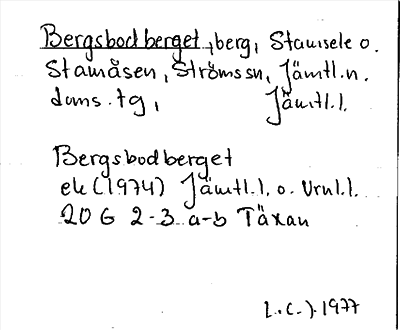 Bergsbodberget, berg, Stamsele o.
Stamåsen, Ströms sn, Jämtl.n.
doms.tg, Jämtl.l.
Bergsbodberget
ek (1974) Jämtl.l. o. Vrnl.l.
20 G 2-3 a-b Täxan
L.C.J. 1977